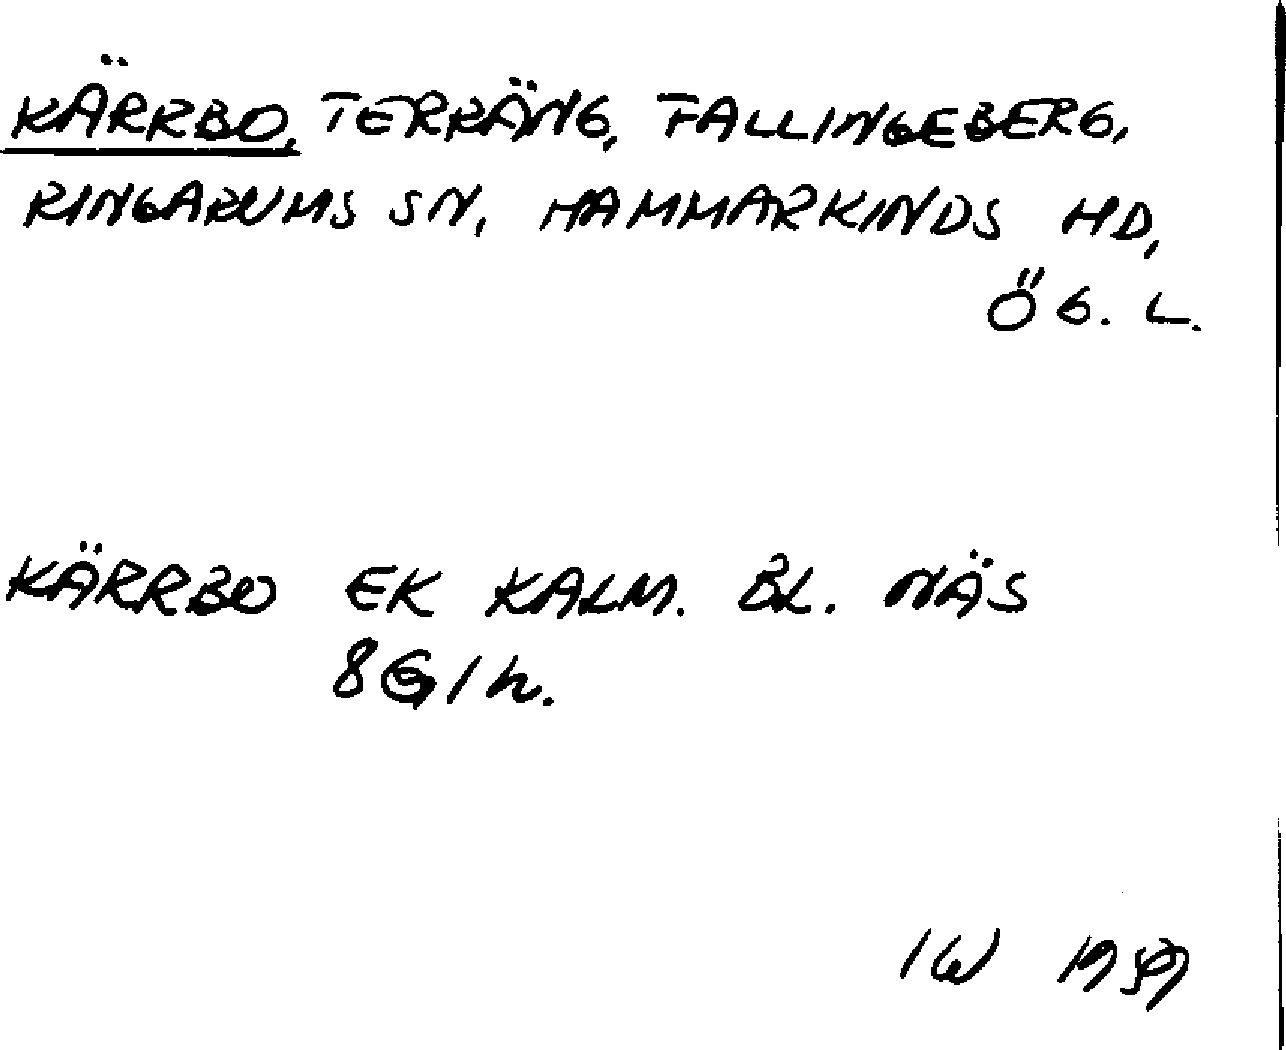 KÄRRBO, TERRÄNG, FALLINGEBERG,
RINGARUMS SN, HAMMARKINDS HD,
ÖG. L.
KÄRRBO EK KALM. BL. NÄS
8G1h.
IW